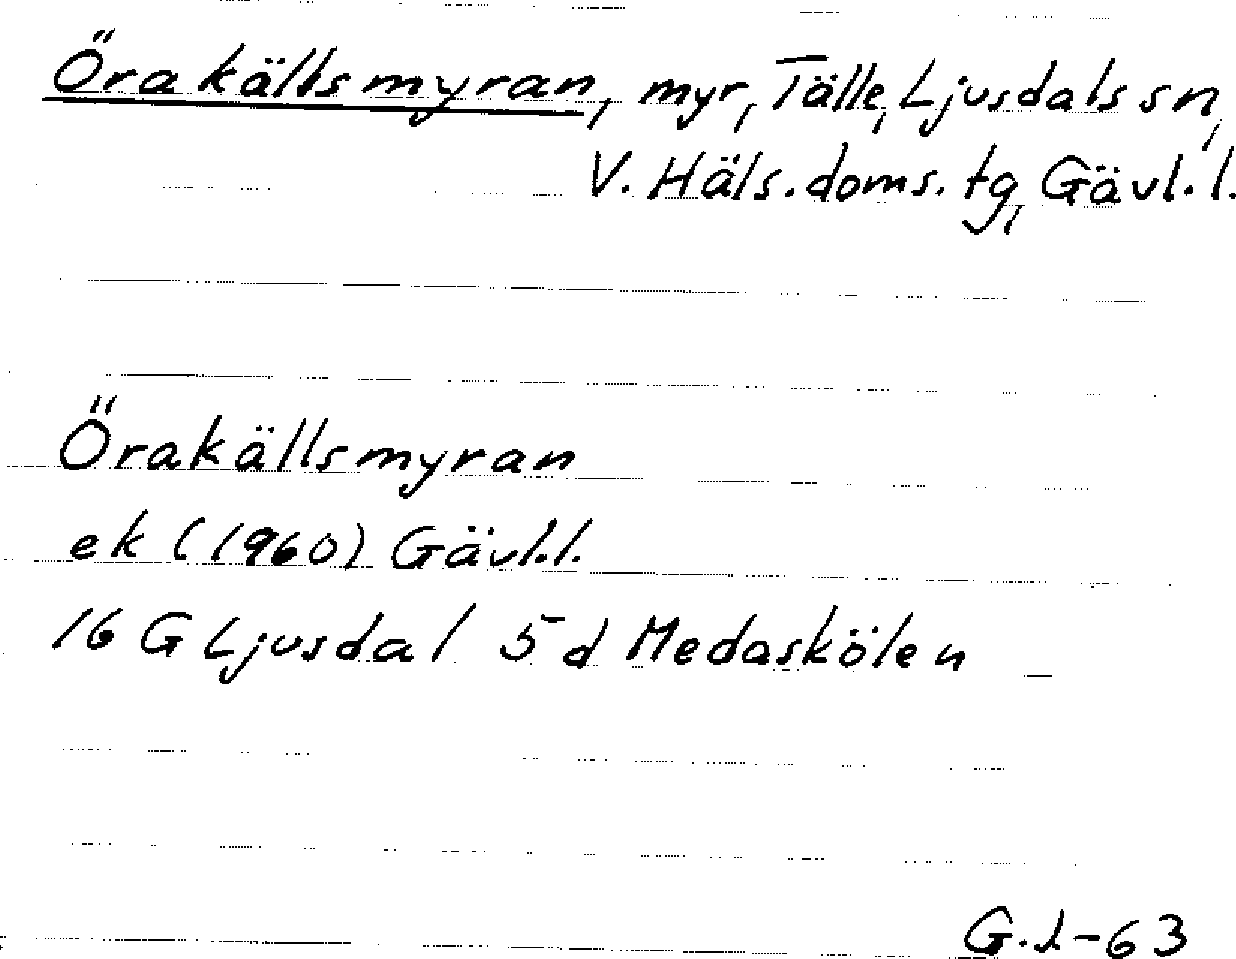 Örakällsmyran, myr, Tälle, Ljusdals sn,
V. Häls. doms. tg, Gävl. l.
Örakällsmyran
ek (1960) Gävl. l.
16 G Ljusdal 5 d Medaskölen
G. L-63